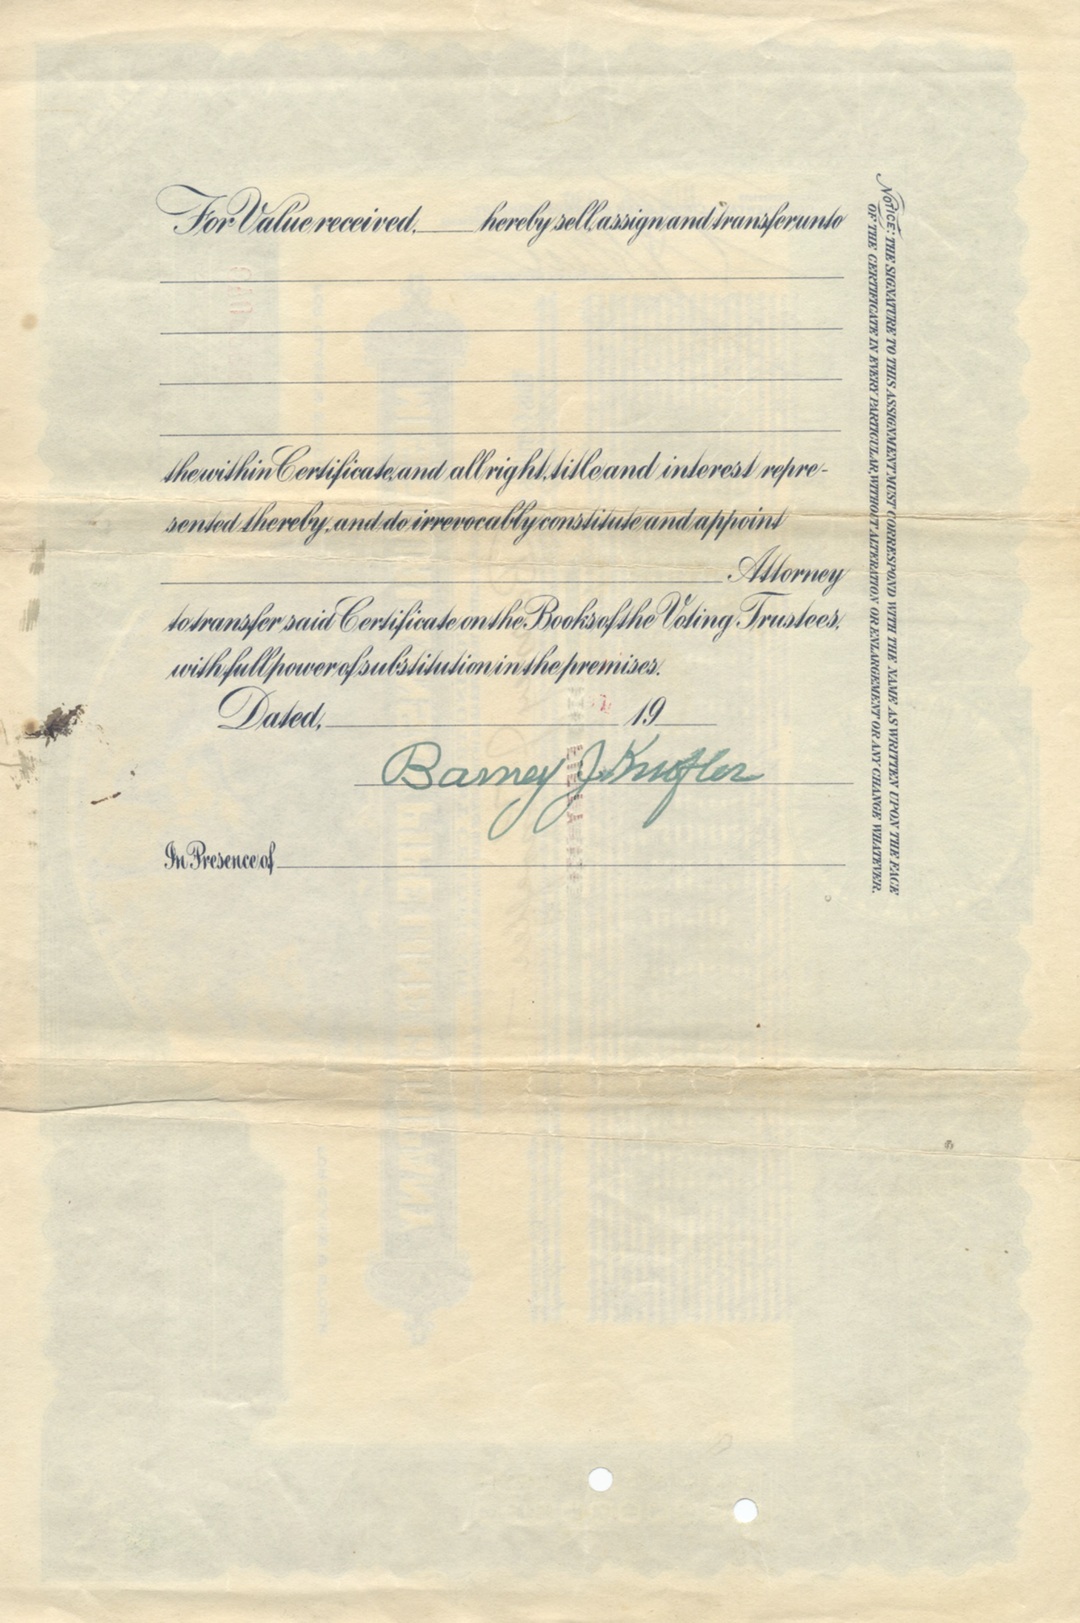 For Value received, ____ hereby sell, assign and transfer unto
the within Certificate, and all right, title and interest repre-
sented thereby, and do irrevocably constitute and appoint
Attorney
to transfer said Certificate on the Books of the Voting Trustees,
with full power of substitution in the premises.
Dated, 19
Barney J.
In Presence of
NOTICE: THE SIGNATURE TO THIS ASSIGNMENT MUST CORRESPOND WITH THE NAME AS WRITTEN UPON THE FACE
OF THE CERTIFICATE IN EVERY PARTICULAR, WITHOUT ALTERATION OR ENLARGEMENT OR ANY CHANGE WHATEVER.